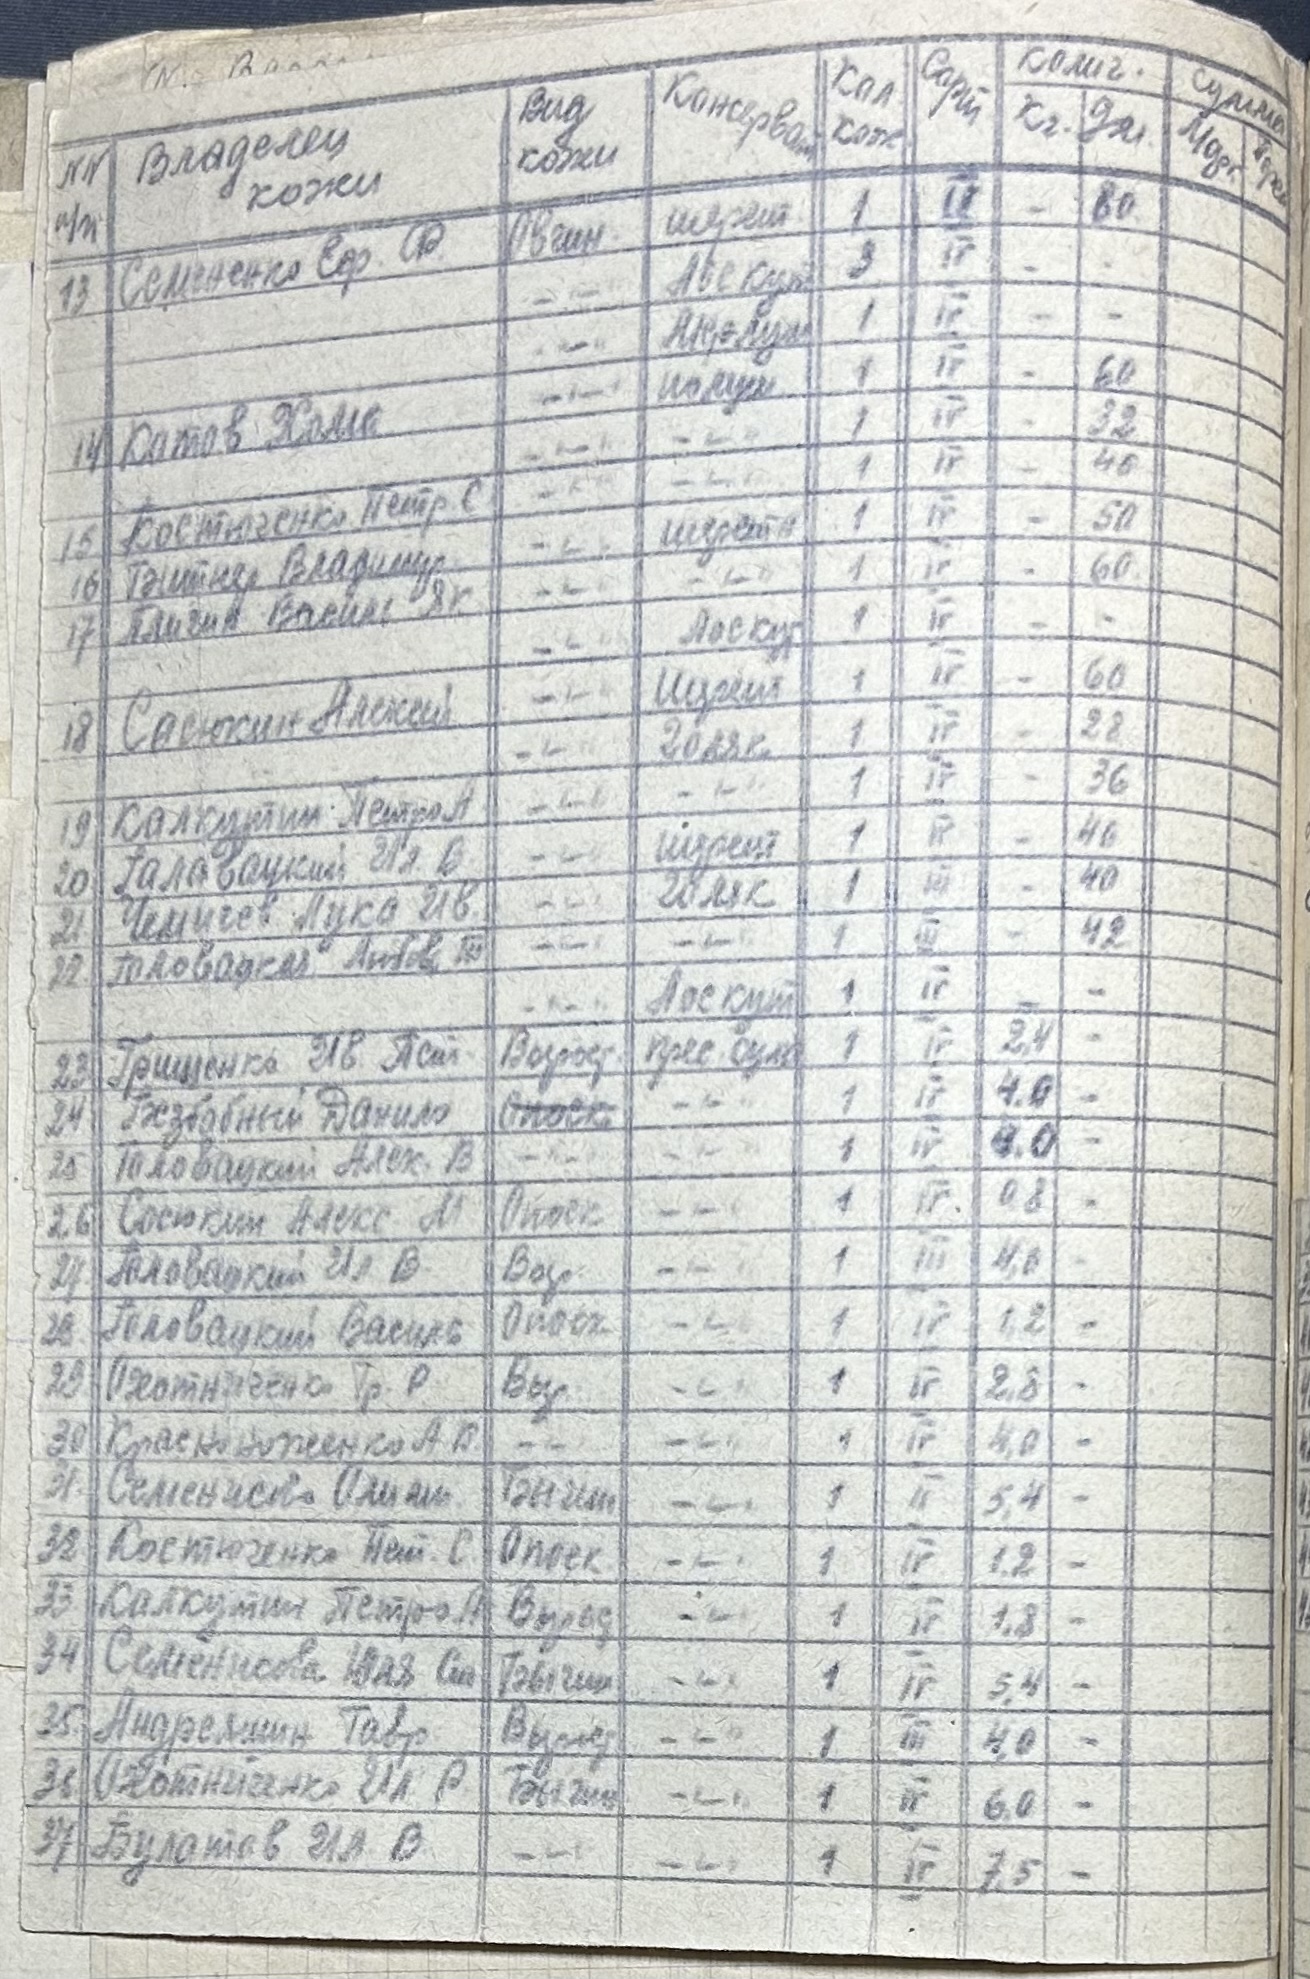 NN п/п Владелец кожи Вид кожи Консерват Кол. кож Сорт Колич. Кг. Дм. Сумма
13 Семененко Ефр. Ф. Овчин. шерст. 1 IV - 60
-"- Лоскут 3 IV - -
-"- 1 IV - -
14 Котов Хома -"- полуш. 1 IV - 60
-"- -"- 1 IV - 32
15 Костюченко Петр. С -"- -"- 1 IV - 40
16 Битнер Владимир -"- шерстн 1 IV - 50
17 Василь Як -"- -"- 1 IV - 60
-"- Лоскут 1 IV - -
18 Сасюкин Алексей -"- Шерст 1 IV - 60
-"- Голяк 1 IV - 28
19 Калкутин Петро А -"- -"- 1 IV - 36
20 Галавацкий Ил. В. -"- шерст 1 IV - 40
21 Чемичев Лука Ив. -"- Голяк 1 III - 40
22 Головацкая Любов -"- -"- 1 III - 42
-"- Лоскут 1 IV - -
23 Грищенко Ив. Пет. Возрос. прес. сухо 1 IV 2,4 -
24 Данило Опоек -"- 1 IV 4.0 -
25 Головацкий Алек. В -"- -"- 1 IV .0 -
26 Сосюкин Алекс. М Опоек -"- 1 IV. 0,8 -
27 Головацкий Ил. В. Воз. -"- 1 III 4,0 -
28 Головацкий Василь Опоек -"- 1 IV 1,2 -
29 Охотниченко Гр. Р. Воз. -"- 1 IV 2,8 -
30 Красноноженко А. -"- -"- 1 IV 4,0 -
31. Семенисова Бычин -"- 1 IV 5,4 -
32 Костюченко Пет. С. Опоек -"- 1 IV 1.2 -
33 Калкутин Петро А Возрос -"- 1 IV 1,8 -
34 Семенисова Бычин -"- 1 IV 5,4 -
35 Андреяшин Гавр. Возрос -"- 1 III 4,0 -
36 Охотниченко Ил. Р. Бычин -"- 1 IV 6.0 -
37 Булатов Ил. В. -"- -"- 1 IV 7,5 -